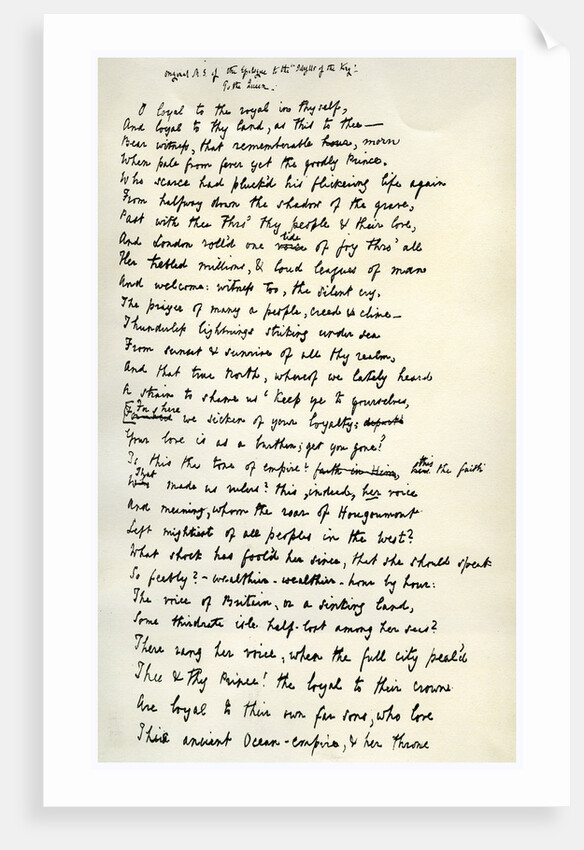 original M.S. of the Epilogue to the "Idylls of the King"
To the Queen.
O loyal to the royal in thyself,
And loyal to thy land, as this to thee—
Bear witness, that rememberable hour, morn
When pale from fever yet the goodly Prince.
Who scarce had pluck'd his flickering life again
From halfway down the shadow of the grave,
Past with thee thro' thy people & their love,
And London roll'd one voice tide of joy thro' all
Her trebled millions, & loud leagues of man
And welcome: witness too, the silent cry,
The prayer of many a people, creed & clime—
Thunderless lightnings striking under sea
From sunset & sunrise of all thy realm,
And that true North, whereof we lately heard
A strain to shame us 'Keep ye to yourselves,
[For shere we sicken of your loyalty:
Your love is as a burthen; get you gone?
Is this the tone of empire? faith in Him, this the faith
That made us rulers? this, indeed, her voice
And meaning, whom the roar of Hougoumont
Left mightiest of all peoples in the west?
What shock has fool'd her since, that she should speak
So feebly? - wealthier - wealthier - hour by hour:
The voice of Britain, or a sinking land,
Some thirdrate isle half-lost among her seas?
There rang her voice, when the full city peal'd
Thee & thy Prince! the loyal to their crown
Are loyal to their own far sons, who love
This ancient Ocean-empire, & her throne